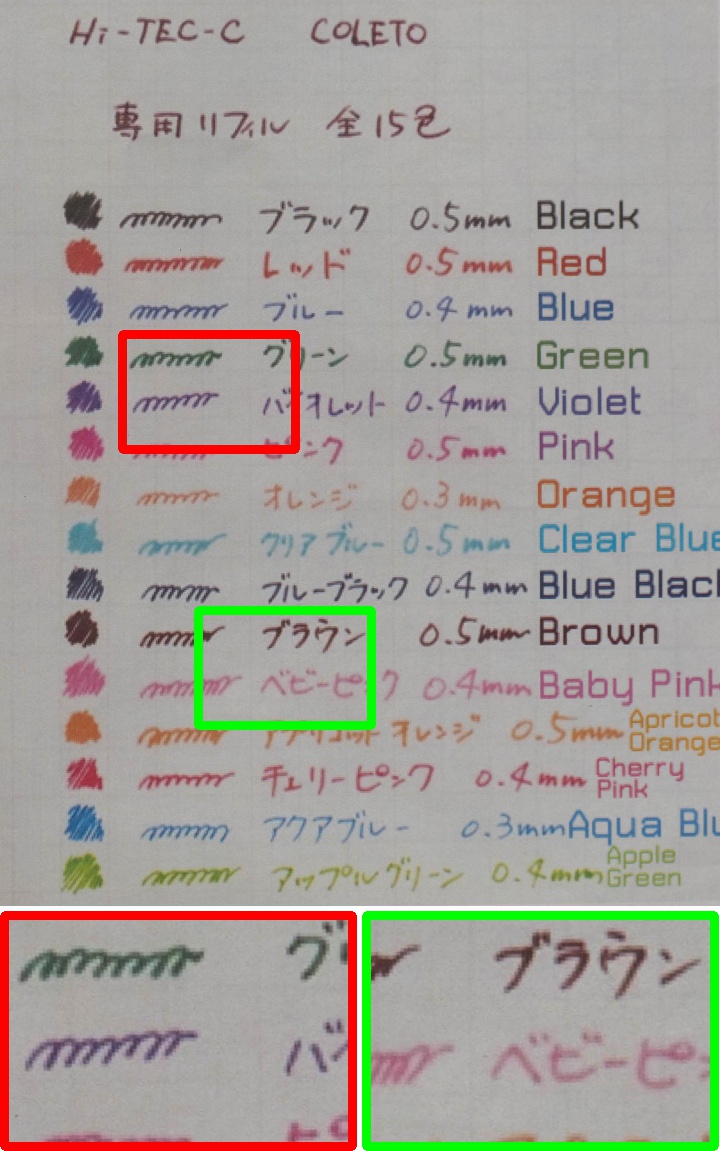 Hi-TEC-C COLETO
専用リフィル 全15色
ブラック 0.5mm Black
レッド 0.5mm Red
ブルー 0.4mm Blue
グリーン 0.5mm Green
バイオレット 0.4mm Violet
ピンク 0.5mm Pink
オレンジ 0.3mm Orange
クリアブルー 0.5mm Clear Blue
ブルーブラック 0.4mm Blue Black
ブラウン 0.5mm Brown
ベビーピンク 0.4mm Baby Pink
アプリコットオレンジ 0.5mm Apricot Orange
チェリーピンク 0.4mm Cherry Pink
アクアブルー 0.3mm Aqua Blu
アップルグリーン 0.4mm Apple Green
グ
バ
ピ
ブラウン
ベビーピ